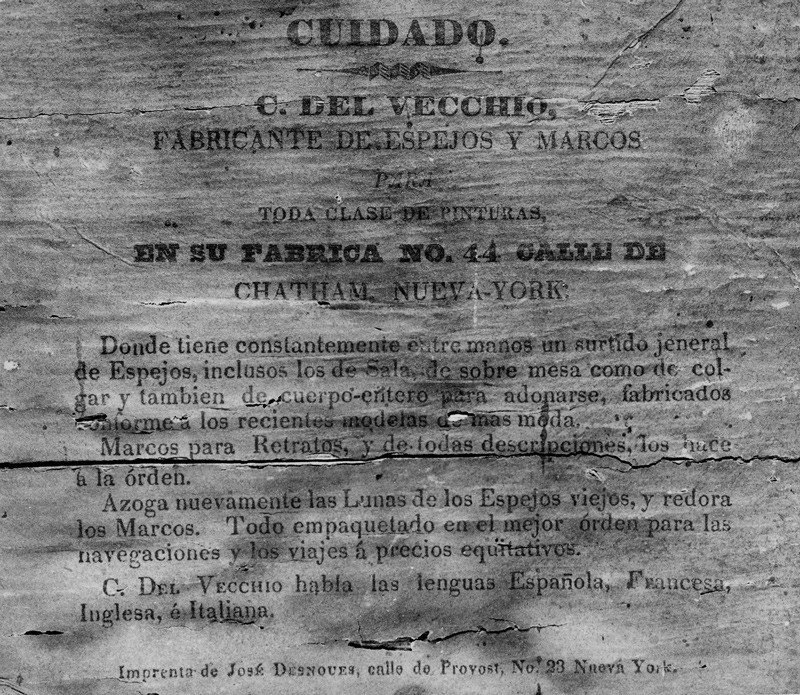 CUIDADO.
C. DEL VECCHIO,
FABRICANTE DE ESPEJOS Y MARCOS
PARA
TODA CLASE DE PINTURAS,
EN SU FABRICA NO. 44 CALLE DE
CHATHAM, NUEVA-YORK:
Donde tiene constantemente entre manos un surtido jeneral
de Espejos, inclusos los de Sala, de sobre mesa como de col-
gar y tambien de cuerpo-entero para adonarse, fabricados
conforme á los recientes modelas de mas moda.
Marcos para Retratos, y de todas descripciones, los hace
à la órden.
Azoga nuevamente las Lunas de los Espejos viejos, y redora
los Marcos. Todo empaquetado en el mejor órden para las
navegaciones y los viajes á precios equitativos.
C. DEL VECCHIO habla las lenguas Española, Francesa,
Inglesa, é Italiana.
Imprenta de JOSÉ DESNOUES, calle de Provost, No. 23 Nueva York.